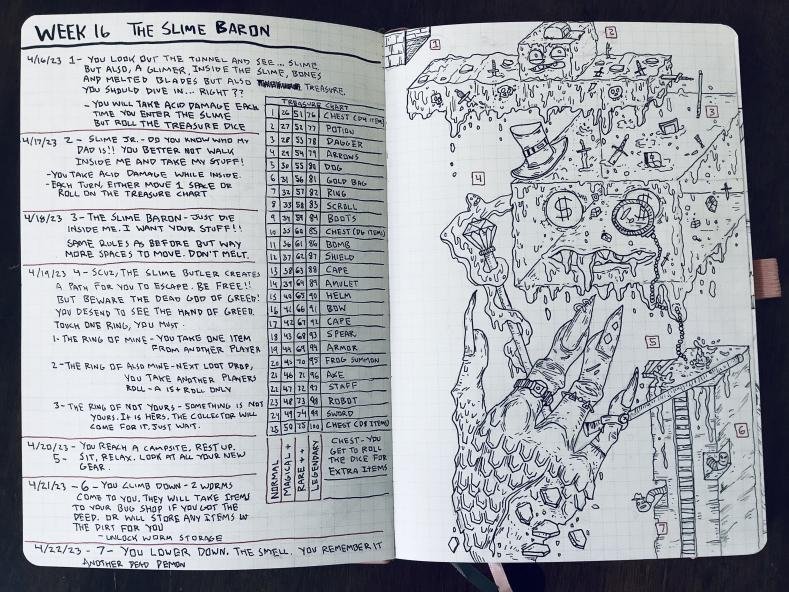 WEEK 16 THE SLIME BARON
4/16/23 1- YOU LOOK OUT THE TUNNEL AND SEE... SLIME
BUT ALSO, A GLIMER. INSIDE THE SLIME, BONES
AND MELTED BLADES BUT ALSO TREASURE.
YOU SHOULD DIVE IN... RIGHT??
- YOU WILL TAKE ACID DAMAGE EACH
TIME YOU ENTER THE SLIME
BUT ROLL THE TREASURE DICE
4/17/23 2- SLIME JR. - DO YOU KNOW WHO MY
DAD IS!! YOU BETTER NOT WALK
INSIDE ME AND TAKE MY STUFF!
- YOU TAKE ACID DAMAGE WHILE INSIDE.
- EACH TURN, EITHER MOVE 1 SPACE OR
ROLL ON THE TREASURE CHART
4/18/23 3- THE SLIME BARON - JUST DIE
INSIDE ME. I WANT YOUR STUFF!!
SAME RULES AS BEFORE BUT WAY
MORE SPACES TO MOVE. DON'T MELT.
4/19/23 4- SCUZ, THE SLIME BUTLER CREATES
A PATH FOR YOU TO ESCAPE. BE FREE!!
BUT BEWARE THE DEAD GOD OF GREED!
YOU DESEND TO SEE THE HAND OF GREED.
TOUCH ONE RING, YOU MUST.
1- THE RING OF MINE - YOU TAKE ONE ITEM
FROM ANOTHER PLAYER
2- THE RING OF ALSO MINE - NEXT LOOT DROP,
YOU TAKE ANOTHER PLAYERS
ROLL - A 15+ ROLL ONLY
3- THE RING OF NOT YOURS - SOMETHING IS NOT
YOURS. IT IS HERS. THE COLLECTOR WILL
COME FOR IT. JUST WAIT.
4/20/23 - YOU REACH A CAMPSITE, REST UP.
5- SIT, RELAX. LOOK AT ALL YOUR NEW
GEAR.
4/21/23 - 6- YOU CLIMB DOWN - 2 WORMS
COME TO YOU. THEY WILL TAKE ITEMS
TO YOUR BUG SHOP IF YOU GOT THE
DEED. OR WILL STORE ANY ITEMS IN
THE DIRT FOR YOU
- UNLOCK WORM STORAGE
4/22/23 - 7- YOU LOWER DOWN. THE SMELL. YOU REMEMBER IT
ANOTHER DEAD DEMON
TREASURE CHART
1 26 51 76 CHEST (D4 ITEMS)
2 27 52 77 POTION
3 28 53 78 DAGGER
4 29 54 79 ARROWS
5 30 55 80 DOG
6 31 56 81 GOLD BAG
7 32 57 82 RING
8 33 58 83 SCROLL
9 34 59 84 BOOTS
10 35 60 85 CHEST (D6 ITEMS)
11 36 61 86 BOMB
12 37 62 87 SHIELD
13 38 63 88 CAPE
14 39 64 89 AMULET
15 40 65 90 HELM
16 41 66 91 BOW
17 42 67 92 CAPE
18 43 68 93 SPEAR
19 44 69 94 ARMOR
20 45 70 95 FROG SUMMON
21 46 71 96 AXE
22 47 72 97 STAFF
23 48 73 98 ROBOT
24 49 74 99 SWORD
25 50 75 100 CHEST (D8 ITEMS)
NORMAL
MAGICAL +
RARE ++
LEGENDARY
CHEST - YOU
GET TO ROLL
THE DICE FOR
EXTRA ITEMS
1
2
3
4
$ $
5
6
7